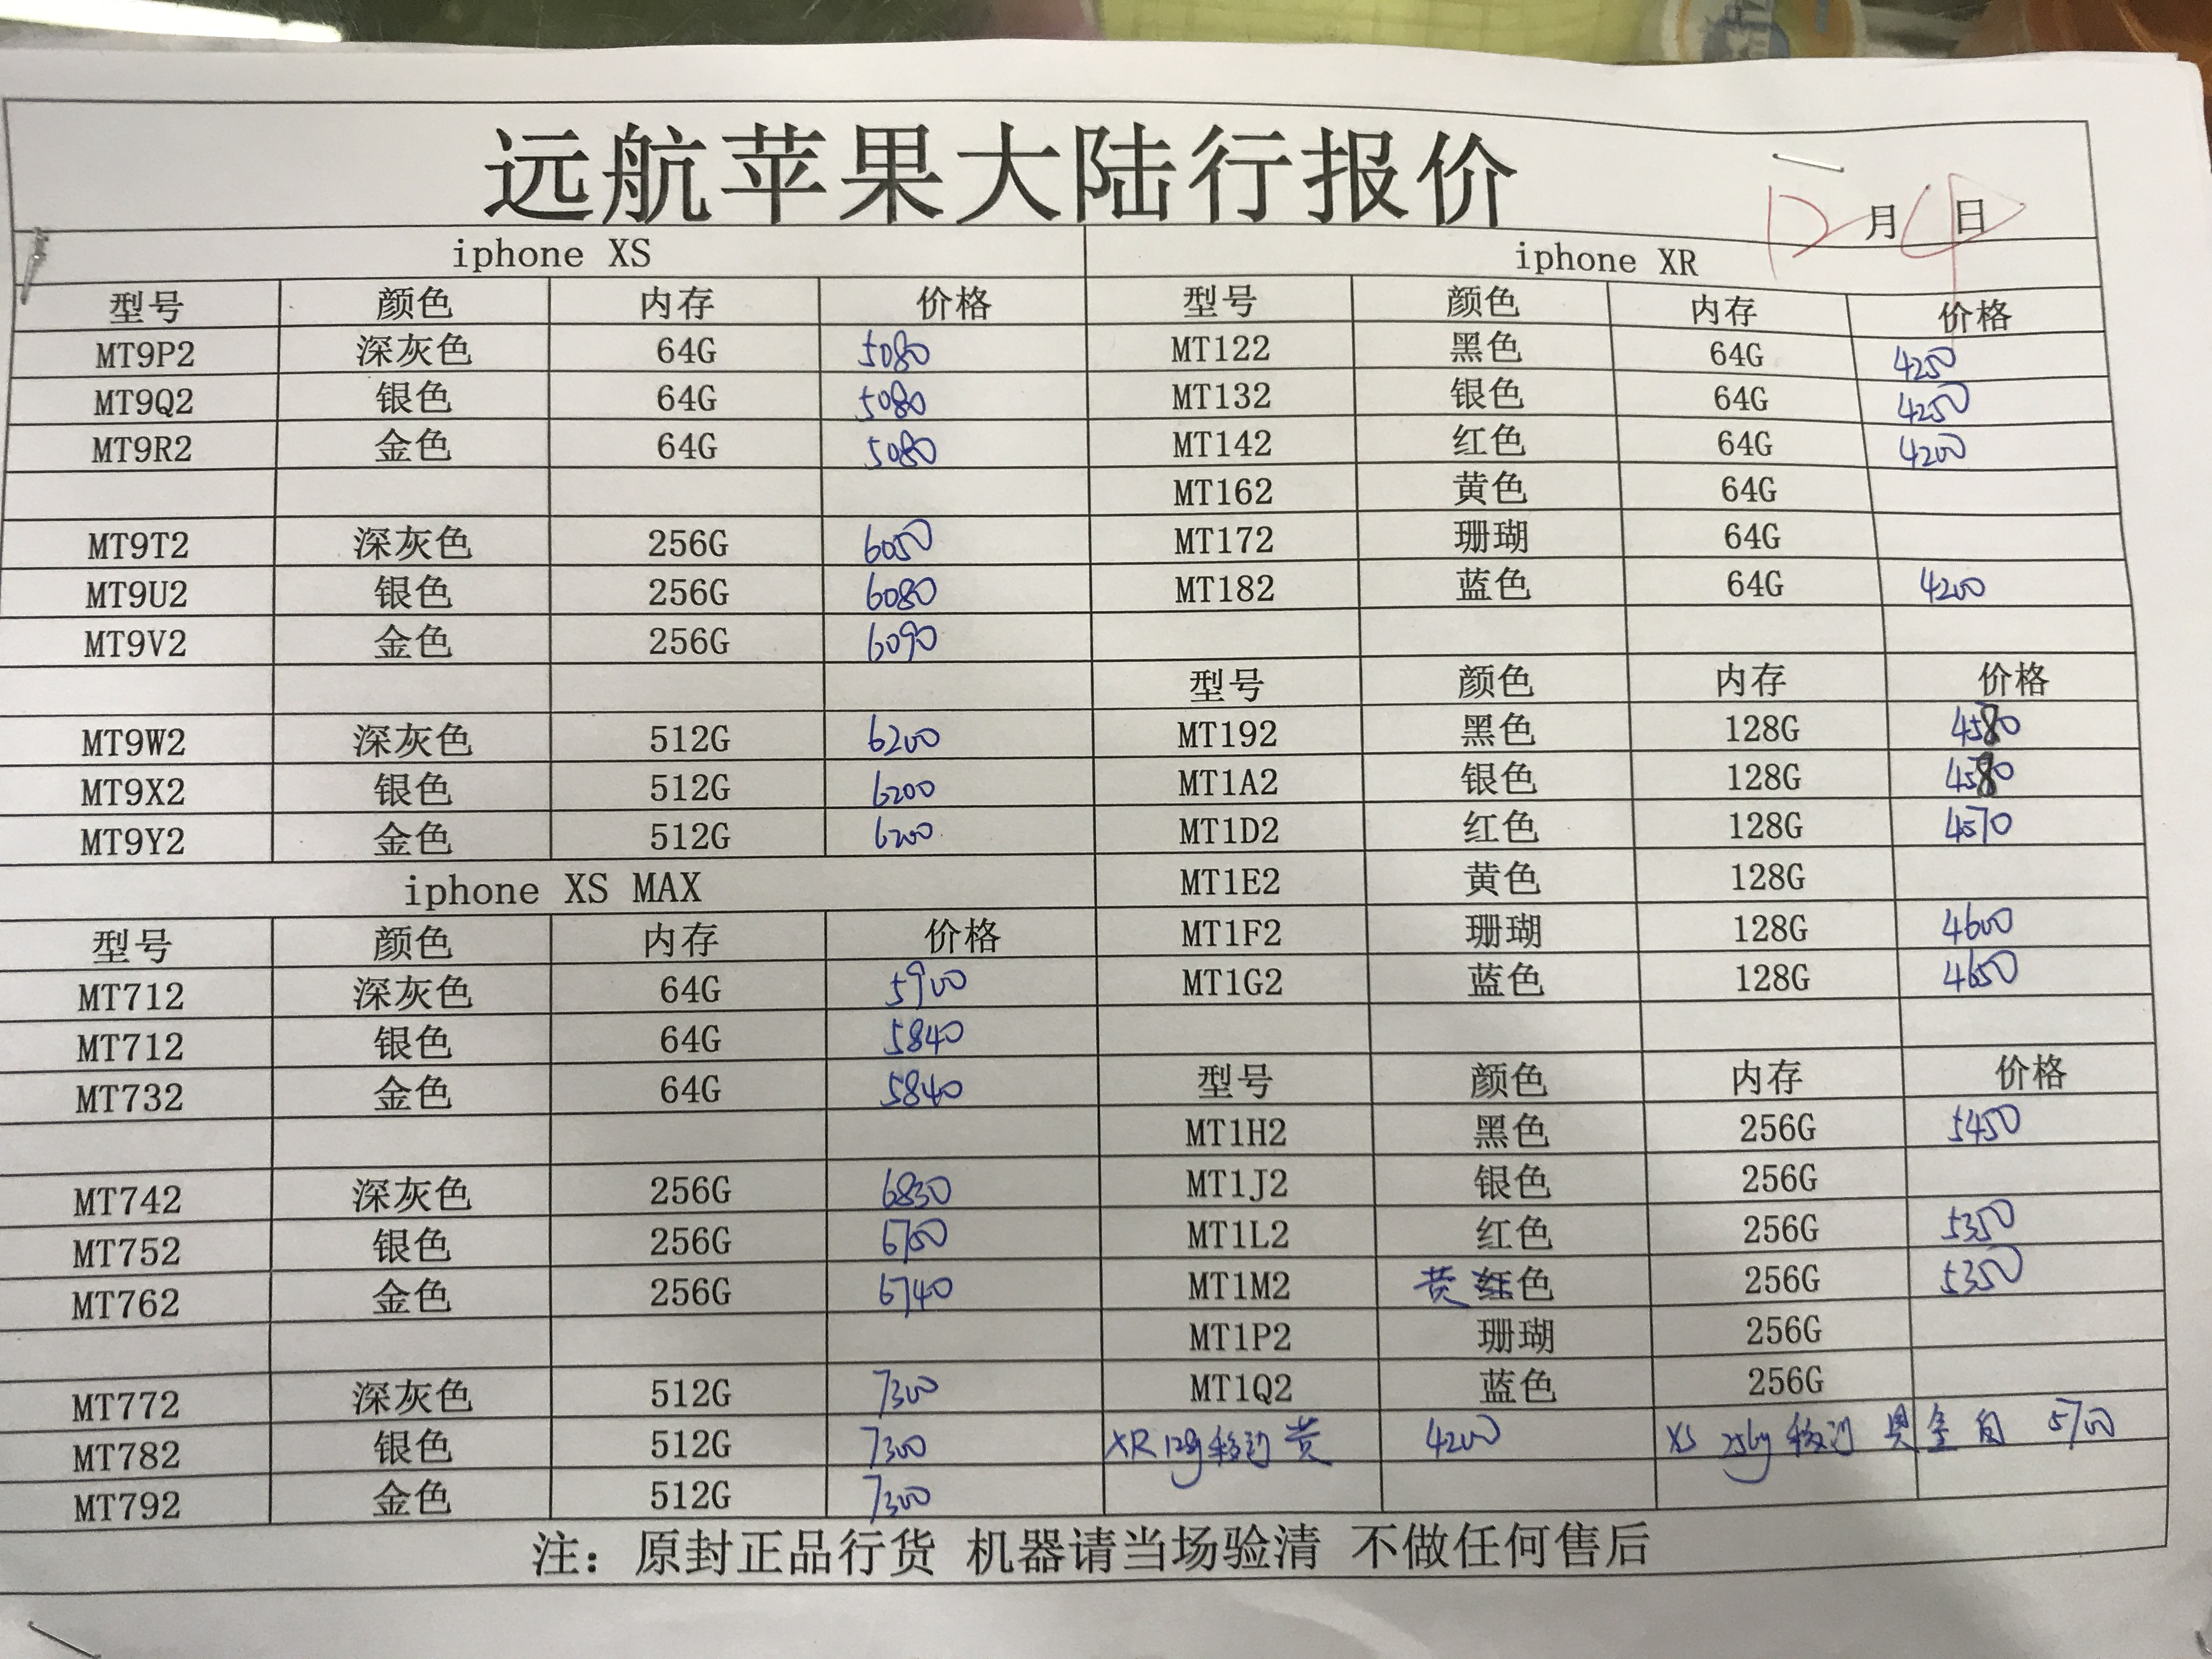 远航苹果大陆行报价
12月4日
iphone XS
型号 颜色 内存 价格
MT9P2 深灰色 64G 5080
MT9Q2 银色 64G 5080
MT9R2 金色 64G 5080
MT9T2 深灰色 256G 6050
MT9U2 银色 256G 6080
MT9V2 金色 256G 6090
MT9W2 深灰色 512G 6200
MT9X2 银色 512G 6200
MT9Y2 金色 512G 6200
iphone XS MAX
型号 颜色 内存 价格
MT712 深灰色 64G 5900
MT712 银色 64G 5840
MT732 金色 64G 5840
MT742 深灰色 256G 6830
MT752 银色 256G 6700
MT762 金色 256G 6740
MT772 深灰色 512G 7300
MT782 银色 512G 7300
MT792 金色 512G 7300
iphone XR
型号 颜色 内存 价格
MT122 黑色 64G 4250
MT132 银色 64G 4250
MT142 红色 64G 4200
MT162 黄色 64G
MT172 珊瑚 64G
MT182 蓝色 64G 4200
型号 颜色 内存 价格
MT192 黑色 128G 4580
MT1A2 银色 128G 4580
MT1D2 红色 128G 4570
MT1E2 黄色 128G
MT1F2 珊瑚 128G 4600
MT1G2 蓝色 128G 4650
型号 颜色 内存 价格
MT1H2 黑色 256G 5450
MT1J2 银色 256G
MT1L2 红色 256G 5350
MT1M2 黄 红色 256G 5350
MT1P2 珊瑚 256G
MT1Q2 蓝色 256G
XR 128g 移动 黄 4200 XS 256g 移动 黑 金 白 5700
注：原封正品行货 机器请当场验清 不做任何售后